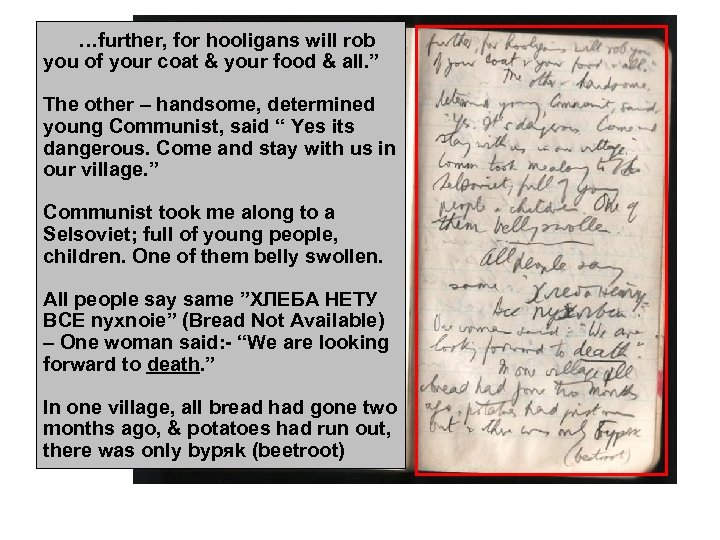 …further, for hooligans will rob
you of your coat & your food & all.”
The other – handsome, determined
young Communist, said “ Yes its
dangerous. Come and stay with us in
our village. ”
Communist took me along to a
Selsoviet; full of young people,
children. One of them belly swollen.
All people say same ”ХЛЕБА НЕТУ
ВСЕ nyxnoie” (Bread Not Available)
– One woman said: - “We are looking
forward to death. ”
In one village, all bread had gone two
months ago, & potatoes had run out,
there was only bypяk (beetroot)
further, for hooligans will rob you
of your coat & your food & all."
The other – handsome,
determined young Communist, said
"Yes. It's dangerous. Come and
stay with us in our village."
Comm. took me along to
Selsoviet; full of young
people & children. One of
them belly swollen.
All people say
same
One woman said: "We are
looking forward to death."
In one village all
bread had gone two months
ago, potatoes had run out
& there was only
(beetroot)